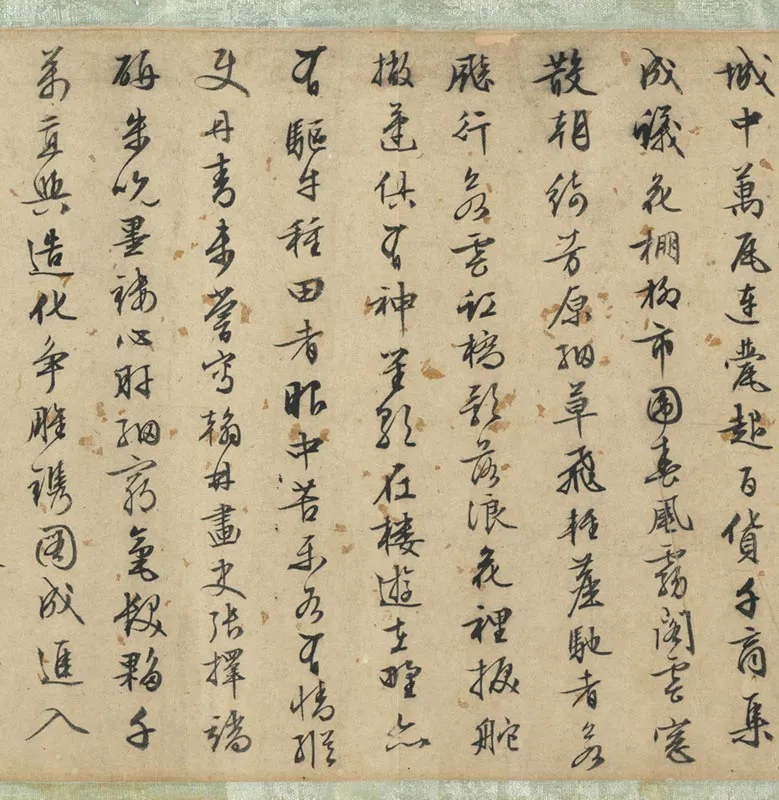 城中萬瓦連甍起百貨千商集
成蟻花棚柳市圍春風霧閣雲窓
散朝綺芳原細草飛輕塵馳者若
飇行若雲虹橋影落浪花裡捩舵
撇蓬俱有神笙歌在樓遊在野亦
有驅牛種田者眼中苦樂各有情縱
使丹青未嘗寫翰林畫史張擇端
研朱吮墨鏤心肝細窮毫髮夥千
萬直與造化爭雕鐫圖成進入